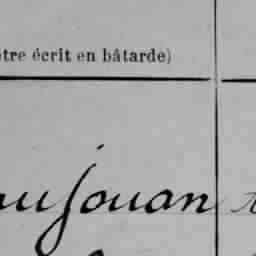 tre écrit en bâtarde)
aujouan